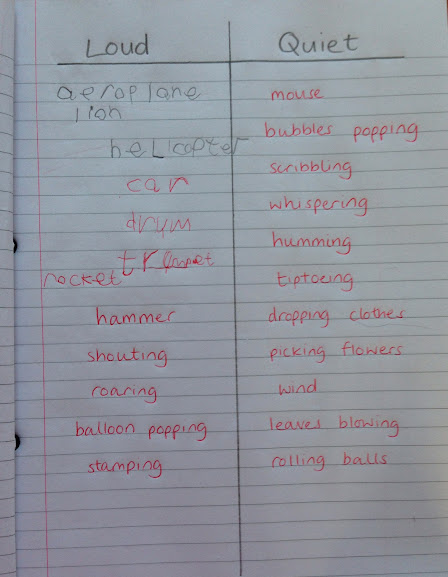 Loud Quiet
aeroplane
lion
helicopter
car
drum
trumpet
rocket
hammer
shouting
roaring
balloon popping
stamping
mouse
bubbles popping
scribbling
whispering
humming
tiptoeing
dropping clothes
picking flowers
wind
leaves blowing
rolling balls